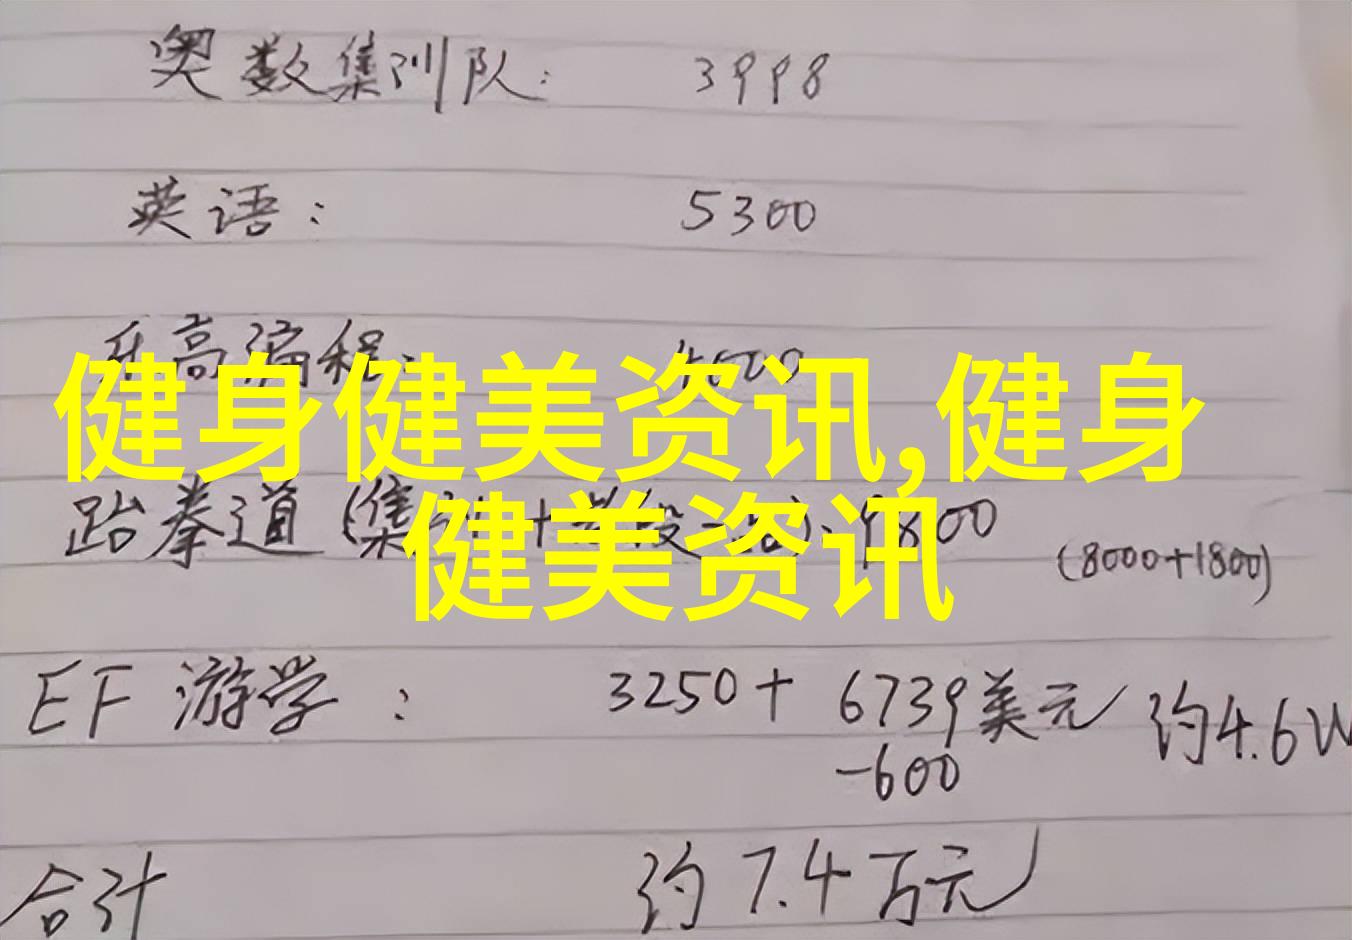 奥数集训队: 3998
英语: 5300
乐高编程:
健身健美资讯,健身
健美资讯
跆拳道(集训+ 9800
(8000+1800)
EF 游学: 3250+6739美元 约4.6W
-600
合计 约7.4万元